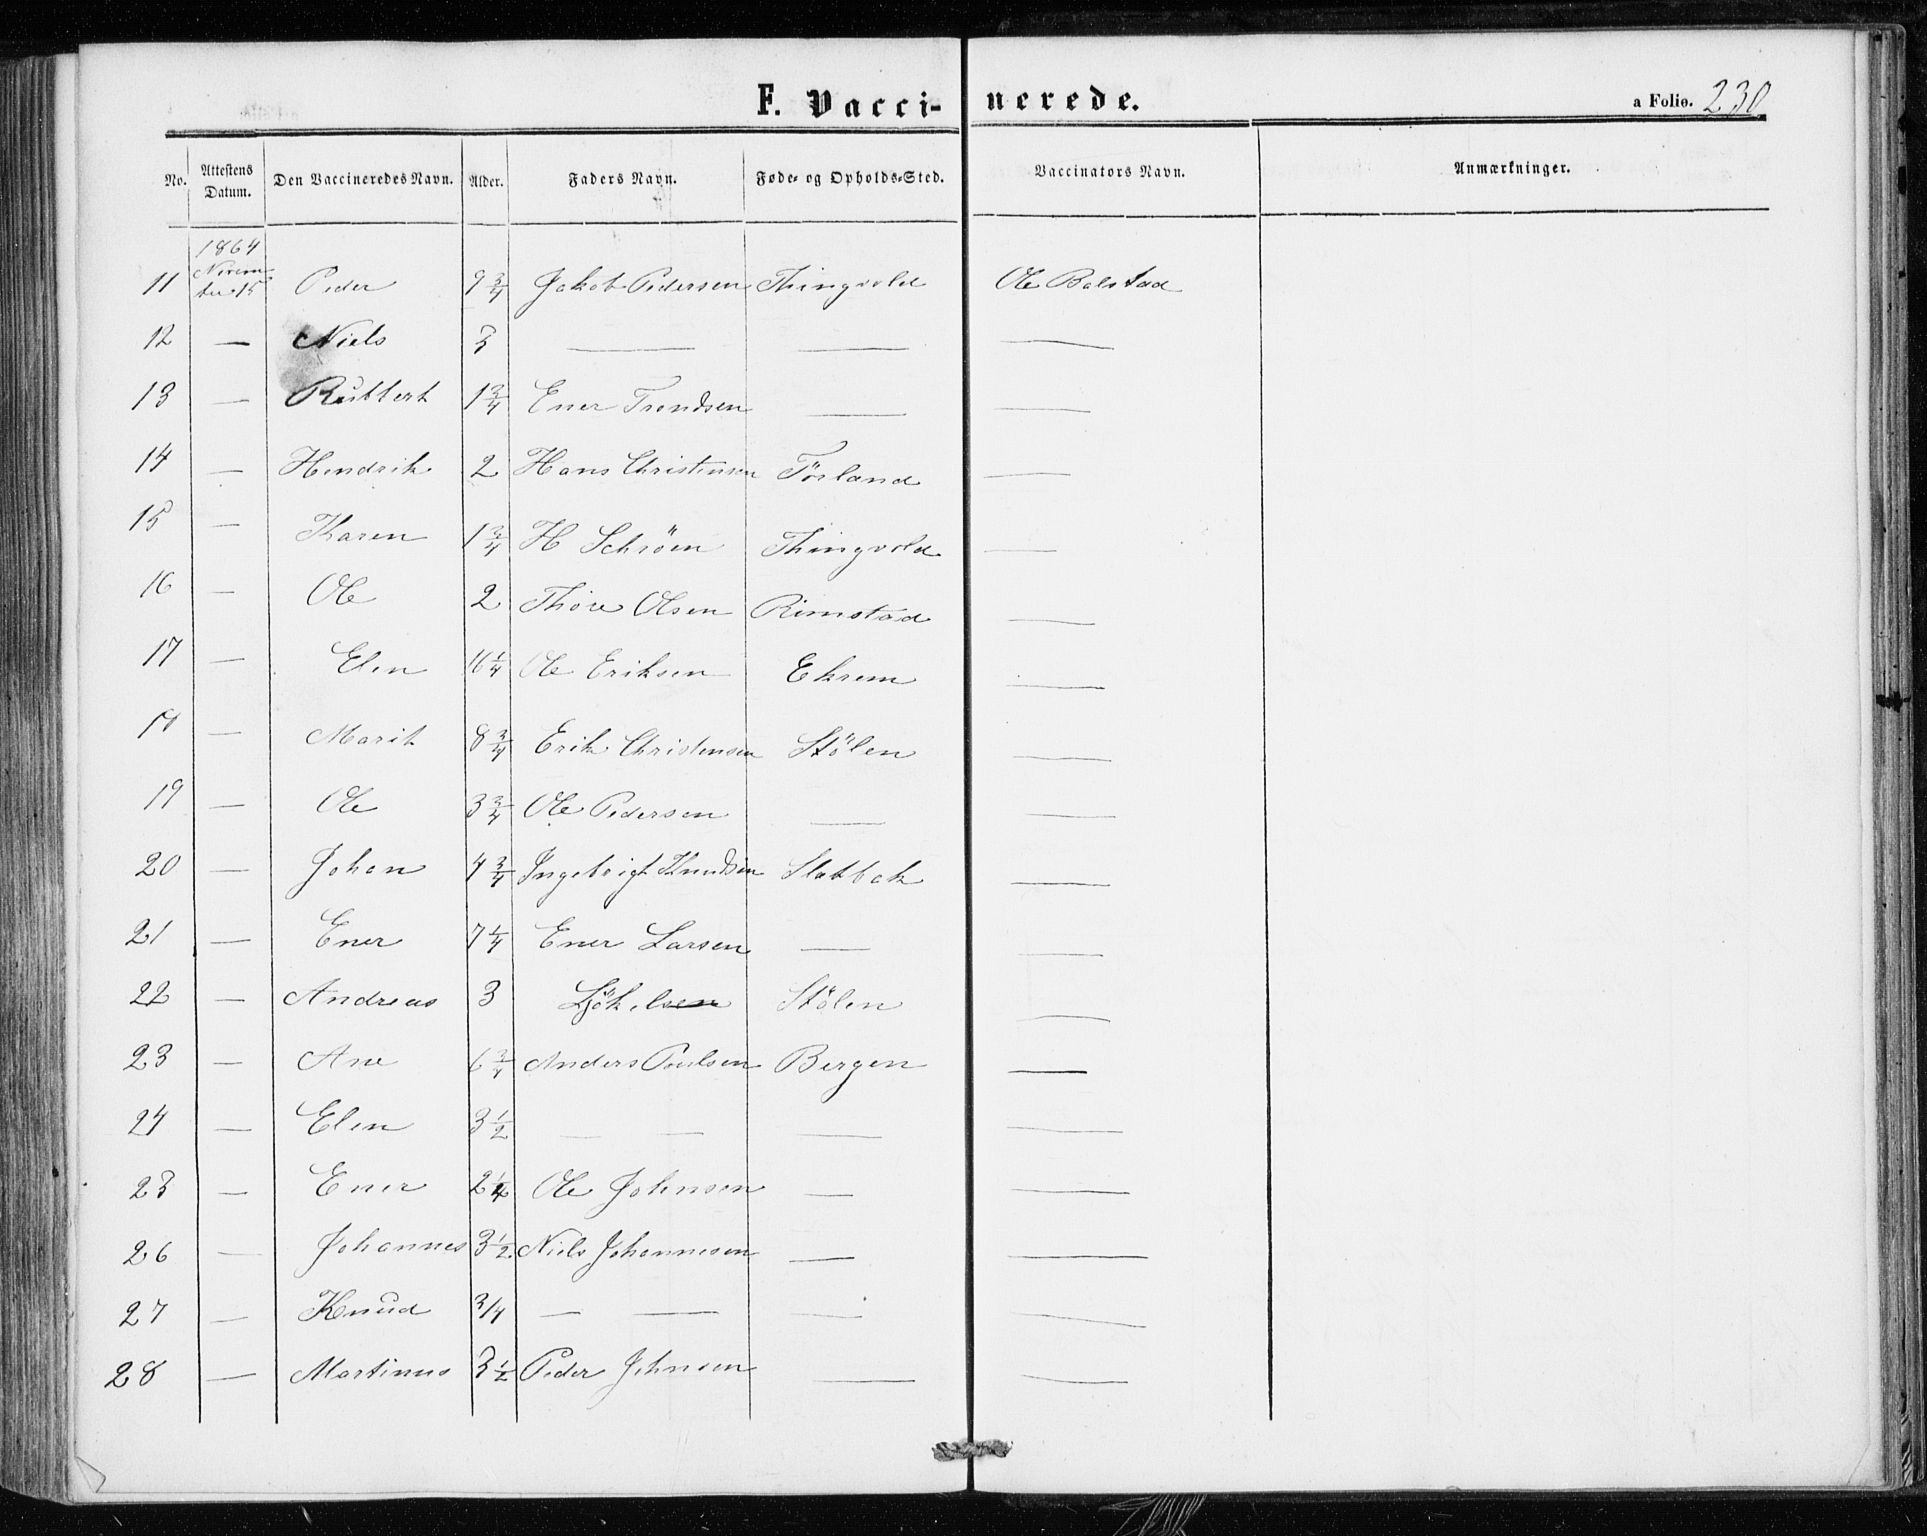 F. Vacci- nerede. a Folio. 230
No. Attestens Datum. Den Vaccineredes Navn. Alder. Faders Navn. Føde- og Opholds-Sted. Vaccinators Navn. Anmærkninger.
1864
11 Novem ber 15 Peder 9 3/4 Jakob Pedersen Thingvold Ole Bolstad
12 — Niels 3 — — —
13 — Ruttert 1 3/4 Ener Trondsen — —
14 — Hendrik 2 Hans Christensen Törland —
15 — Karen 1 3/4 H Schröen Thingvold —
16 — Ole 2 Thöre Olsen Rimstad —
17 — Elen 16 1/4 Ole Eriksen Ekrem —
18 — Marit 8 3/4 Erik Christensen Stölen —
19 — Ole 3 3/4 Ole Pedersen — —
20 — Johan 4 3/4 Ingebrigt Knudsen Slatbak —
21 — Ener 7 1/4 Ener Larsen — —
22 — Andreas 3 Stölen —
23 — Ane 6 3/4 Anders Poulsen Bergen —
24 — Elen 3 1/2 — — — —
23 — Ener 2 1/4 Ole Johnsen — —
26 — Johannes 3 1/2 Niels Johannesen — —
27 — Knud 3/4 — — — —
28 — Martinus 3 1/2 Peder Johnsen — —